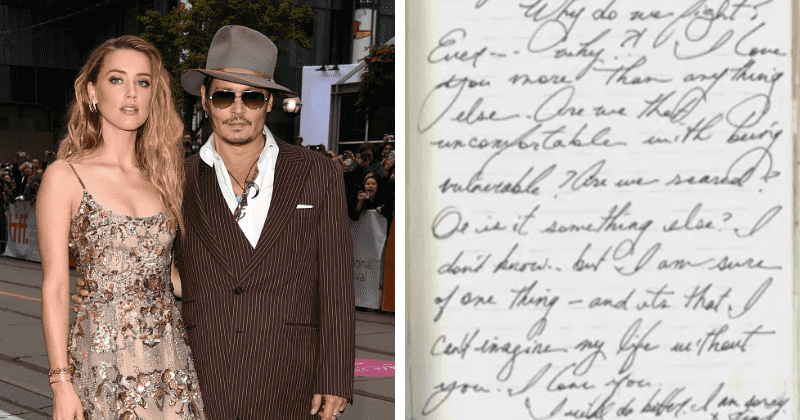 Why do we fight?
Ever-- why..?! I love
you more than anything
else. Are we that
uncomfortable with being
vulnerable? Are we scared?
Or is it something else? I
don't know.. but I am sure
of one thing - and its that I
can't imagine my life without
you. I love you.
I will do better. I am sorry